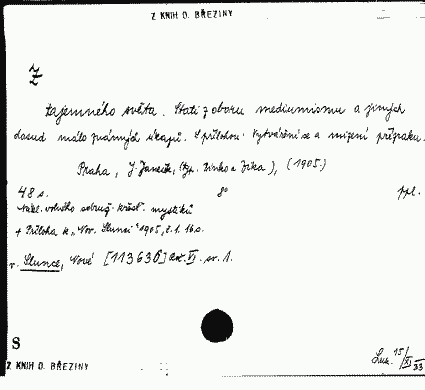 Z KNIH O. BŘEZINY
Z
tajemného světa. Stati z oboru mediumismu a jiných
dosud málo známých úkazů. S přílohou: Vytváření se a mizení přízraku.
Praha, J. Janeček, (typ. Zinko a Jíka), (1905.)
48 s. 8° ppl.
Nákl. volného sdruž. křesť. mystiků
+ Příloha k „Nov. Slunci" 1905, č. 1. 16 s.
v. Slunce, Nové [113636] roč. VI. sv. 1.
S
Z KNIH O. BŘEZINY
15/XI 33